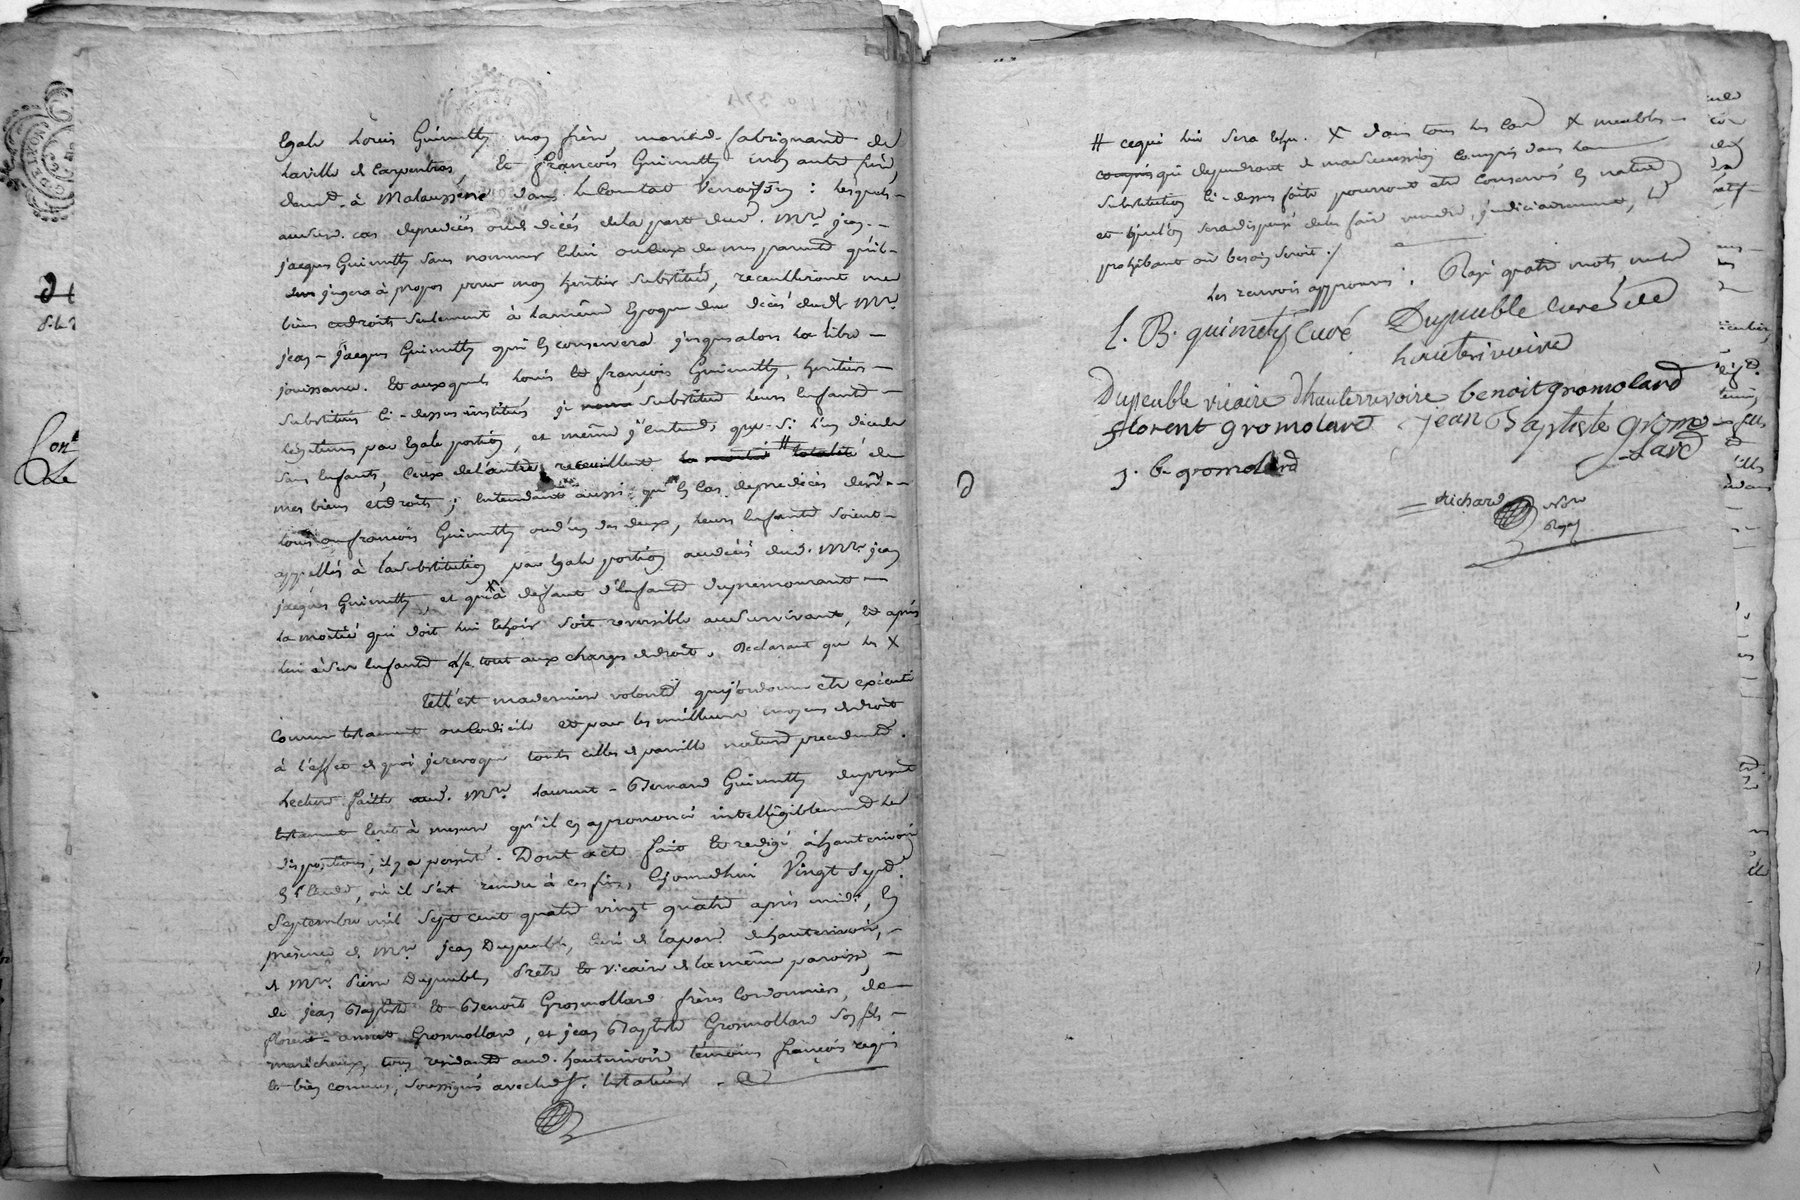 Egale Louis Guimetty mon frère, marchand fabriquand de
la ville de Carpentras, et françois Guimetty mon autre frère,
demt. à Malaussene dans le Comtat Venaissin : lesquels
audit cas de prédécès ou de décés de la part dud. Mre. jean
jacques Guimetty sans nommer celui ou ceux de mes parents qu'il
jugera à propos pour mon héritier substitué, recueilliront mes
biens et droits seulement à la même Epoque du décès dudt Mre
jean jacques Guimetty qui En conservera jusques alors la libre
jouissance. Et auxquels Louis et françois Guimetty, héritiers
substitués ci-dessus institués je substitue leurs Enfants
héritiers par Egale portion, et même j'entends que si l'un décede
sans Enfants, Ceux de l'autre recueillent la moitié # totalité de
mes biens et droits ; Entendant aussi qu'En cas de prédécès desd.
Louis ou françois Guimetty ou d'un des deux, leurs Enfants soient
appellés à la substitution par Egale portion au décés dud. Mre. jean
jacques Guimetty, et qu'à deffaut d'Enfants du premourant
la moitié qui doit lui Echoir soit reversible au survivant, et après
lui à ses Enfants, le tout aux charges de droit. Déclarant que les X
Telle est ma derniere volonté que j'ordonne être exécutée
comme testament ou Codicile et par les meilleurs moyens de droit
à l'effet de quoi je revoque toutes celles de pareille nature précédentes.
Lecture faitte aud. Mre. Laurent-Bernard Guimetty du présent
testament Ecrit à mesure qu'il En a prononcé intelligiblement les
dispositions, il y a persisté. Dont acte fait et redigé à hauterivoire
En l'Etude, où il s'est rendu à ces fins, Ejourdhui Vingt Sept
Septembre mil sept cent quatre vingt quatre après midi, En
présence de Mre. Jean Dupeuble, Curé de la par. de hauterivoire,
de Mre. Pierre Dupeuble Prêtre et Vicaire de la même paroisse,
de jean Baptiste et Benoit Grosmollard frères Cordonniers, de
florent Grosmollard, et jean Baptiste Grosmollard son fils
maréchaux, tous residants aud. hauterivoire témoins françois requis
et bien connus, soussignés avec led. S. testateur.
# ce qui lui sera Echu. X dans tous les cas X meubles
compris qui dependront de ma succession compris dans la
substitution ci-dessus faite pourront être conservés En nature
et qu'on sera dispensé de les faire vendre judiciairement, le
prohibant où besoin seroit ./.
Les renvois approuvés ; Rayé quatre mots nuls
L. B. guimety Curé Dupeuble curé de
hauterivoire
Dupeuble vicaire d'hauterrivoire benoit gromolard
florent gromolard jean Baptiste grom
olard
j. b. gromolard
Richard Nore
Royal